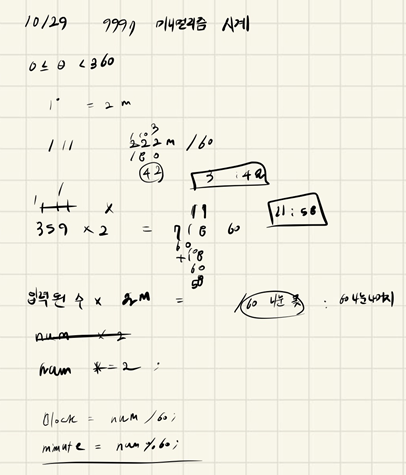 10/29 미니멀리즘 시계
0 ≤ θ < 360
1° = 2 m
111 222 m / 60
180
42
3 : 42
359 × 2 = 718 60
11
11 : 58
60
118
60
58
입력된 수 × 2m = / 60 나눈 몫 : 60 나눈 나머지
num × 2
num *= 2 ;
clock = num / 60 ;
minute = num % 60 ;